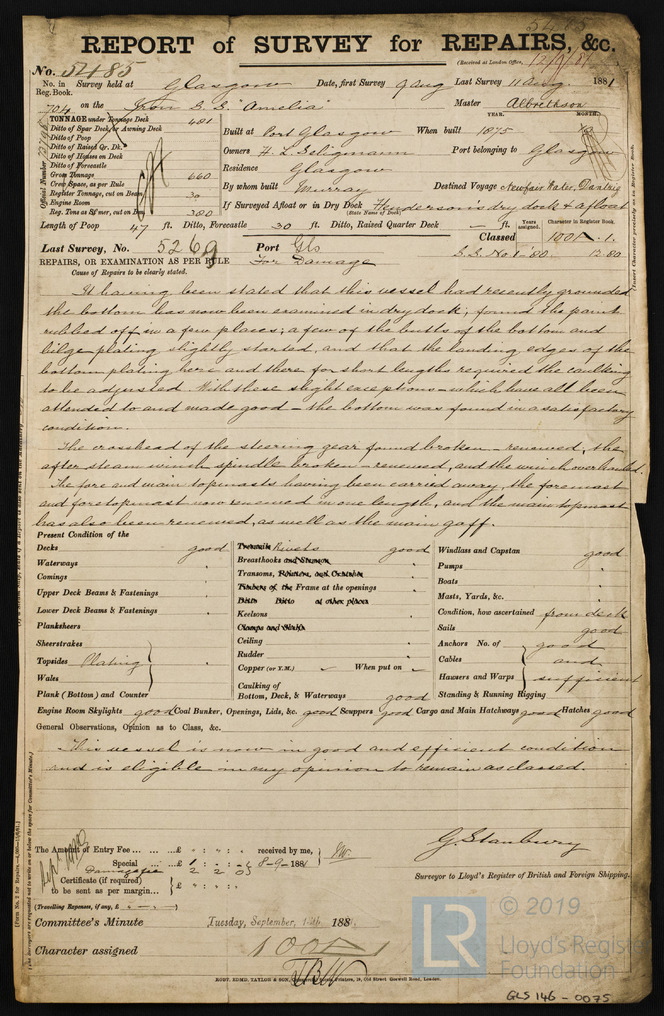 REPORT of SURVEY for REPAIRS, &c.
No. 5485
(Received at London Office, 12/9/81)
No. in Reg. Book. Survey held at Glasgow Date, first Survey 9 Aug Last Survey 11 Aug 1881
704 on the Iron S.S. "Amelia" Master Albrethson
TONNAGE under Tonnage Deck 481
Ditto of Spar Deck, or Awning Deck
Ditto of Poop
Ditto of Raised Qr. Dk.
Ditto of Houses on Deck
Ditto of Forecastle
Gross Tonnage 660
Crew Space, as per Rule
Register Tonnage, cut on Beam 30
Engine Room
Reg. Tons as Str mer, cut on Beam 380
Official Number
YEAR. MONTH.
Built at Port Glasgow When built 1875
Owners H. L. Seligmann Port belonging to Glasgow
Residence Glasgow
By whom built Murray Destined Voyage Newfair Water, Dantzig
If Surveyed Afloat or in Dry Dock Henderson's dry dock & afloat
(State Name of Dock)
Length of Poop 47 ft. Ditto, Forecastle 30 ft. Ditto, Raised Quarter Deck — ft.
Years assigned. Character in Register Book.
Last Survey, No. 5269 Port Gls Classed 100A.1.
S.S. No 1-'80. 12.80
REPAIRS, OR EXAMINATION AS PER RULE For Damage
Cause of Repairs to be clearly stated.
It having been stated that this vessel had recently grounded
the bottom has now been examined in dry dock; found the paint
rubbed off in a few places; a few of the butts of the bottom and
bilge plating slightly started, and that the landing edges of the
bottom plating here and there for short lengths required the caulking
to be adjusted. With these slight exceptions – which have all been
attended to and made good – the bottom was found in a satisfactory
condition.
The crosshead of the steering gear found broken – renewed, the
after steam winch spindle broken – renewed, and the winch overhauled.
The fore and main topmasts having been carried away, the foremast
and foretopmast now renewed in one length, and the main topmast
has also been renewed, as well as the main gaff.
Present Condition of the
Decks good
Waterways "
Comings "
Upper Deck Beams & Fastenings "
Lower Deck Beams & Fastenings "
Planksheers
Sheerstrakes
Topsides Plating "
Wales
Plank (Bottom) and Counter
Treenails Rivets good
Breasthooks and Stemson "
Transoms, Pointers, and Crutches "
Timbers of the Frame at the openings "
Ditto Ditto at other places
Keelsons "
Clamps and Shelfs
Ceiling "
Rudder "
Copper (or Y.M.) – When put on –
Caulking of
Bottom, Deck, & Waterways good
Windlass and Capstan good
Pumps "
Boats "
Masts, Yards, &c. "
Condition, how ascertained from deck
Sails good
Anchors No. of good
Cables and
Hawsers and Warps sufficient
Standing & Running Rigging
Engine Room Skylights good Coal Bunker, Openings, Lids, &c. good Scuppers good Cargo and Main Hatchways good Hatches good
General Observations, Opinion as to Class, &c.
This vessel is now in good and efficient condition
and is eligible in my opinion to remain as classed.
The Amount of Entry Fee ... ... ... £ " : " : " received by me,
Special ... ... £ 1 : " : " 8-9-1881
Damage fee 2 2 0
Certificate (if required)
to be sent as per margin... £ " : " : "
(Travelling Expenses, if any, £ " - " - )
G. Stanbury
Surveyor to Lloyd's Register of British and Foreign Shipping.
Committee's Minute Tuesday, September, 13th, 1881.
Character assigned 100A1
ROBT. EDMD. TAYLOR & SON, Printers, 19, Old Street, Goswell Road, London.
© 2019
LR
Lloyd's Register
Foundation
GLS 146 - 0075